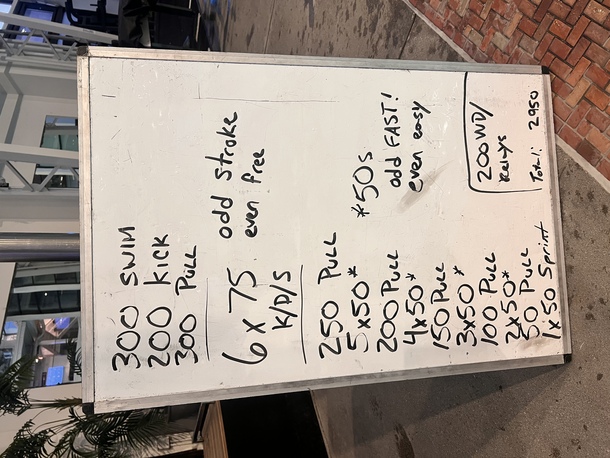 300 SWIM
200 KICK
300 PULL
6x75
K/D/S
odd stroke
even free
250 PULL
5x50*
200 PULL
4x50*
150 PULL
3x50*
100 PULL
2x50*
50 PULL
1x50 Sprint
*50s
odd FAST!
even easy
200 WD/
Relays
Total: 2950